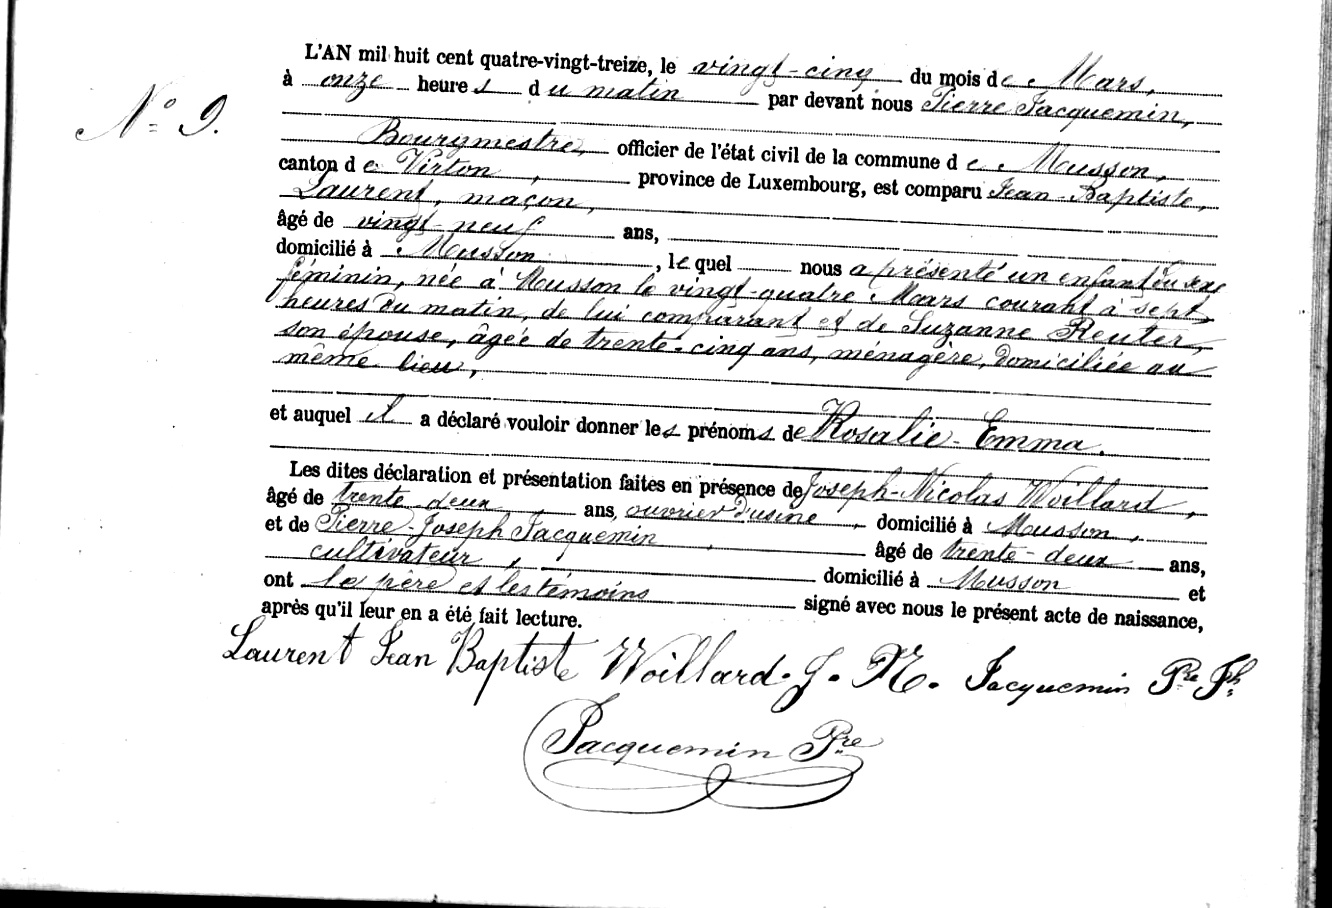 L'AN mil huit cent quatre-vingt-treize, le vingt-cinq du mois de Mars,
à onze heures du matin par devant nous Pierre Jacquemin,
N° 9.
Bourgmestre, officier de l'état civil de la commune de Musson,
canton de Virton, province de Luxembourg, est comparu Jean-Baptiste,
Laurent, maçon,
âgé de vingt-neuf ans,
domicilié à Musson, le quel nous a présenté un enfant du sexe
féminin, née à Musson le vingt-quatre Mars courant à sept
heures du matin, de lui comparant et de Suzanne Reuter,
son épouse, âgée de trente-cinq ans, ménagère, domiciliée au
même lieu,
et auquel il a déclaré vouloir donner les prénoms de Rosalie-Emma.
Les dites déclaration et présentation faites en présence de Joseph-Nicolas Woillard,
âgé de trente-deux ans, ouvrier d'usine, domicilié à Musson,
et de Pierre-Joseph Jacquemin, âgé de trente-deux ans,
cultivateur, domicilié à Musson et
ont le père et les témoins signé avec nous le présent acte de naissance,
après qu'il leur en a été fait lecture.
Laurent Jean Baptiste Woillard. J. N. Jacquemin Pre Jh
Jacquemin Pre